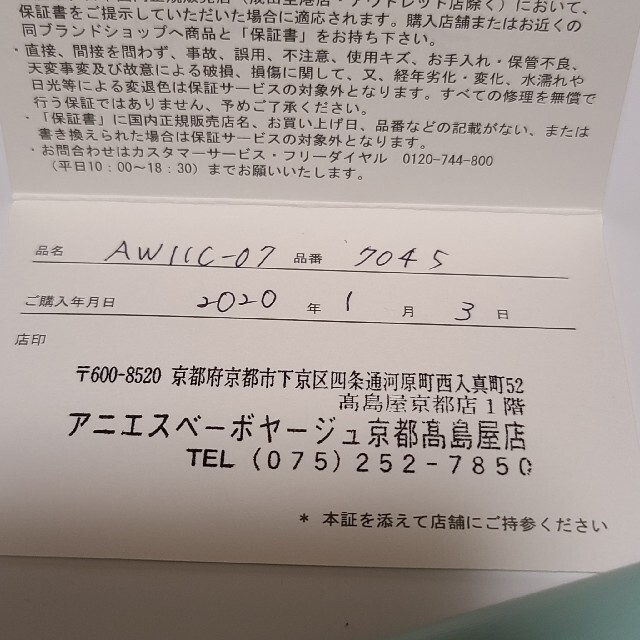 保証書をご提示していただいた場合に適応されます。購入店舗またはお近くの
同ブランドショップへ商品と「保証書」をお持ち下さい。
・直接、間接を問わず、事故、誤用、不注意、使用キズ、お手入れ・保管不良、
天変事変及び故意による破損、損傷に関して、又、経年劣化・変化、水濡れや
日光等による変退色は保証サービスの対象外となります。すべての修理を無償で
行う保証ではありません、予めご了承ください。
・「保証書」に国内正規販売店名、お買い上げ日、品番などの記載がない、または
書き換えられた場合は保証サービスの対象外となります。
・お問合わせはカスタマーサービス・フリーダイヤル 0120-744-800
（平日10：00〜18：30）までお願いいたします。
品名 AW11C-07 品番 7045
ご購入年月日 2020 年 1 月 3 日
店印
〒600-8520 京都府京都市下京区四条通河原町西入真町52
髙島屋京都店1階
アニエスベーボヤージュ京都髙島屋店
TEL (075)252-7850
* 本証を添えて店舗にご持参ください